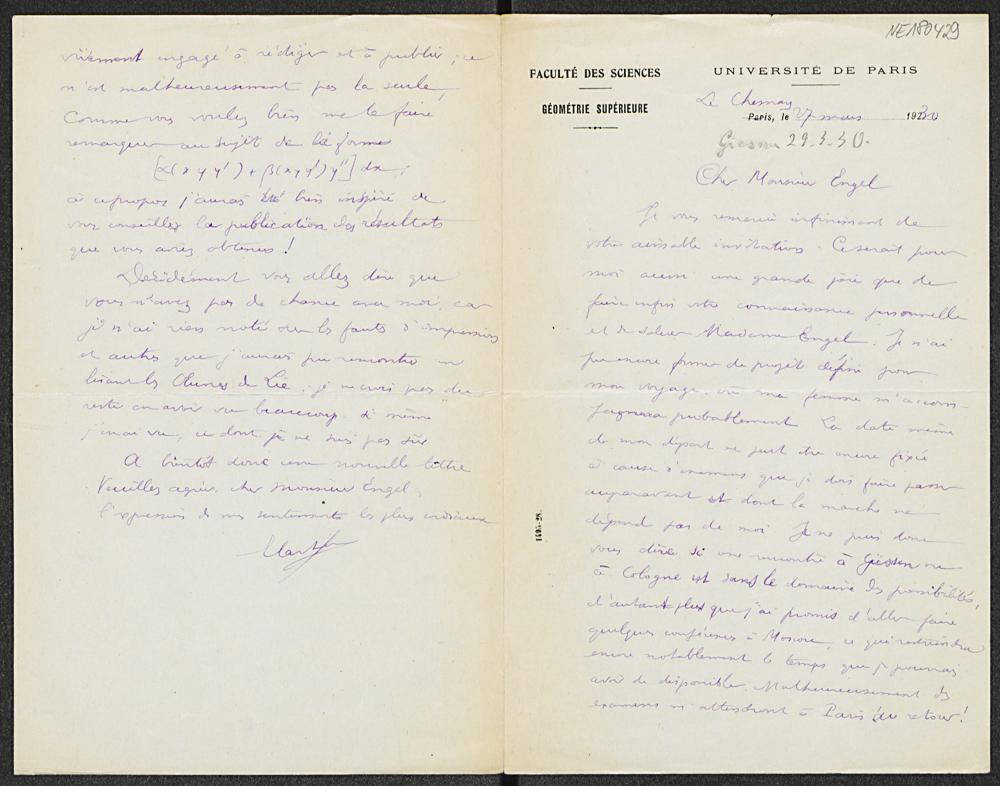 NE180429
FACULTÉ DES SCIENCES
GÉOMÉTRIE SUPÉRIEURE
UNIVERSITÉ DE PARIS
Le Chesnay
Paris, le 27 mars 1930
Giessen 29.3.30.
Cher Monsieur Engel
Je vous remercie infiniment de
votre aimable invitation. Ce serait pour
moi aussi une grande joie que de
faire enfin votre connaissance personnelle
et de saluer Madame Engel. Je n'ai
pu encore former de projet défini pour
mon voyage, où ma femme m'accom-
pagnera probablement. La date même
de mon départ ne peut être encore fixée
à cause d'examens que je dois faire passer
auparavant et dont la marche ne
dépend pas de moi. Je ne puis donc
vous dire si une rencontre à Giessen ou
à Cologne est dans le domaine des possibilités,
d'autant plus que j'ai promis d'aller faire
quelques conférences à Moscou, ce qui restreindra
encore notablement le temps que je pourrai
avoir de disponible. Malheureusement des
examens m'attendront à Paris au retour!
vivement engagé à rédiger et à publier; ce
n'est malheureusement pas la seule,
comme vous voulez bien me le faire
remarquer au sujet de la forme
[α(x y y') + β(x y y') y''] dx;
à ce propos j'aurais été bien inspiré de
vous conseiller la publication des résultats
que vous aviez obtenus!
Décidément vous allez dire que
vous n'avez pas de chance avec moi, car
je n'ai rien noté sur les fautes d'impression
et autres que j'aurais pu rencontrer en
lisant les Œuvres de Lie; je ne crois pas du
reste en avoir vu beaucoup, si même
j'en ai vu, ce dont je ne suis pas sûr
A bientôt donc une nouvelle lettre
Veuillez agréer, cher Monsieur Engel,
l'expression de mes sentiments les plus cordiaux
E Cartan